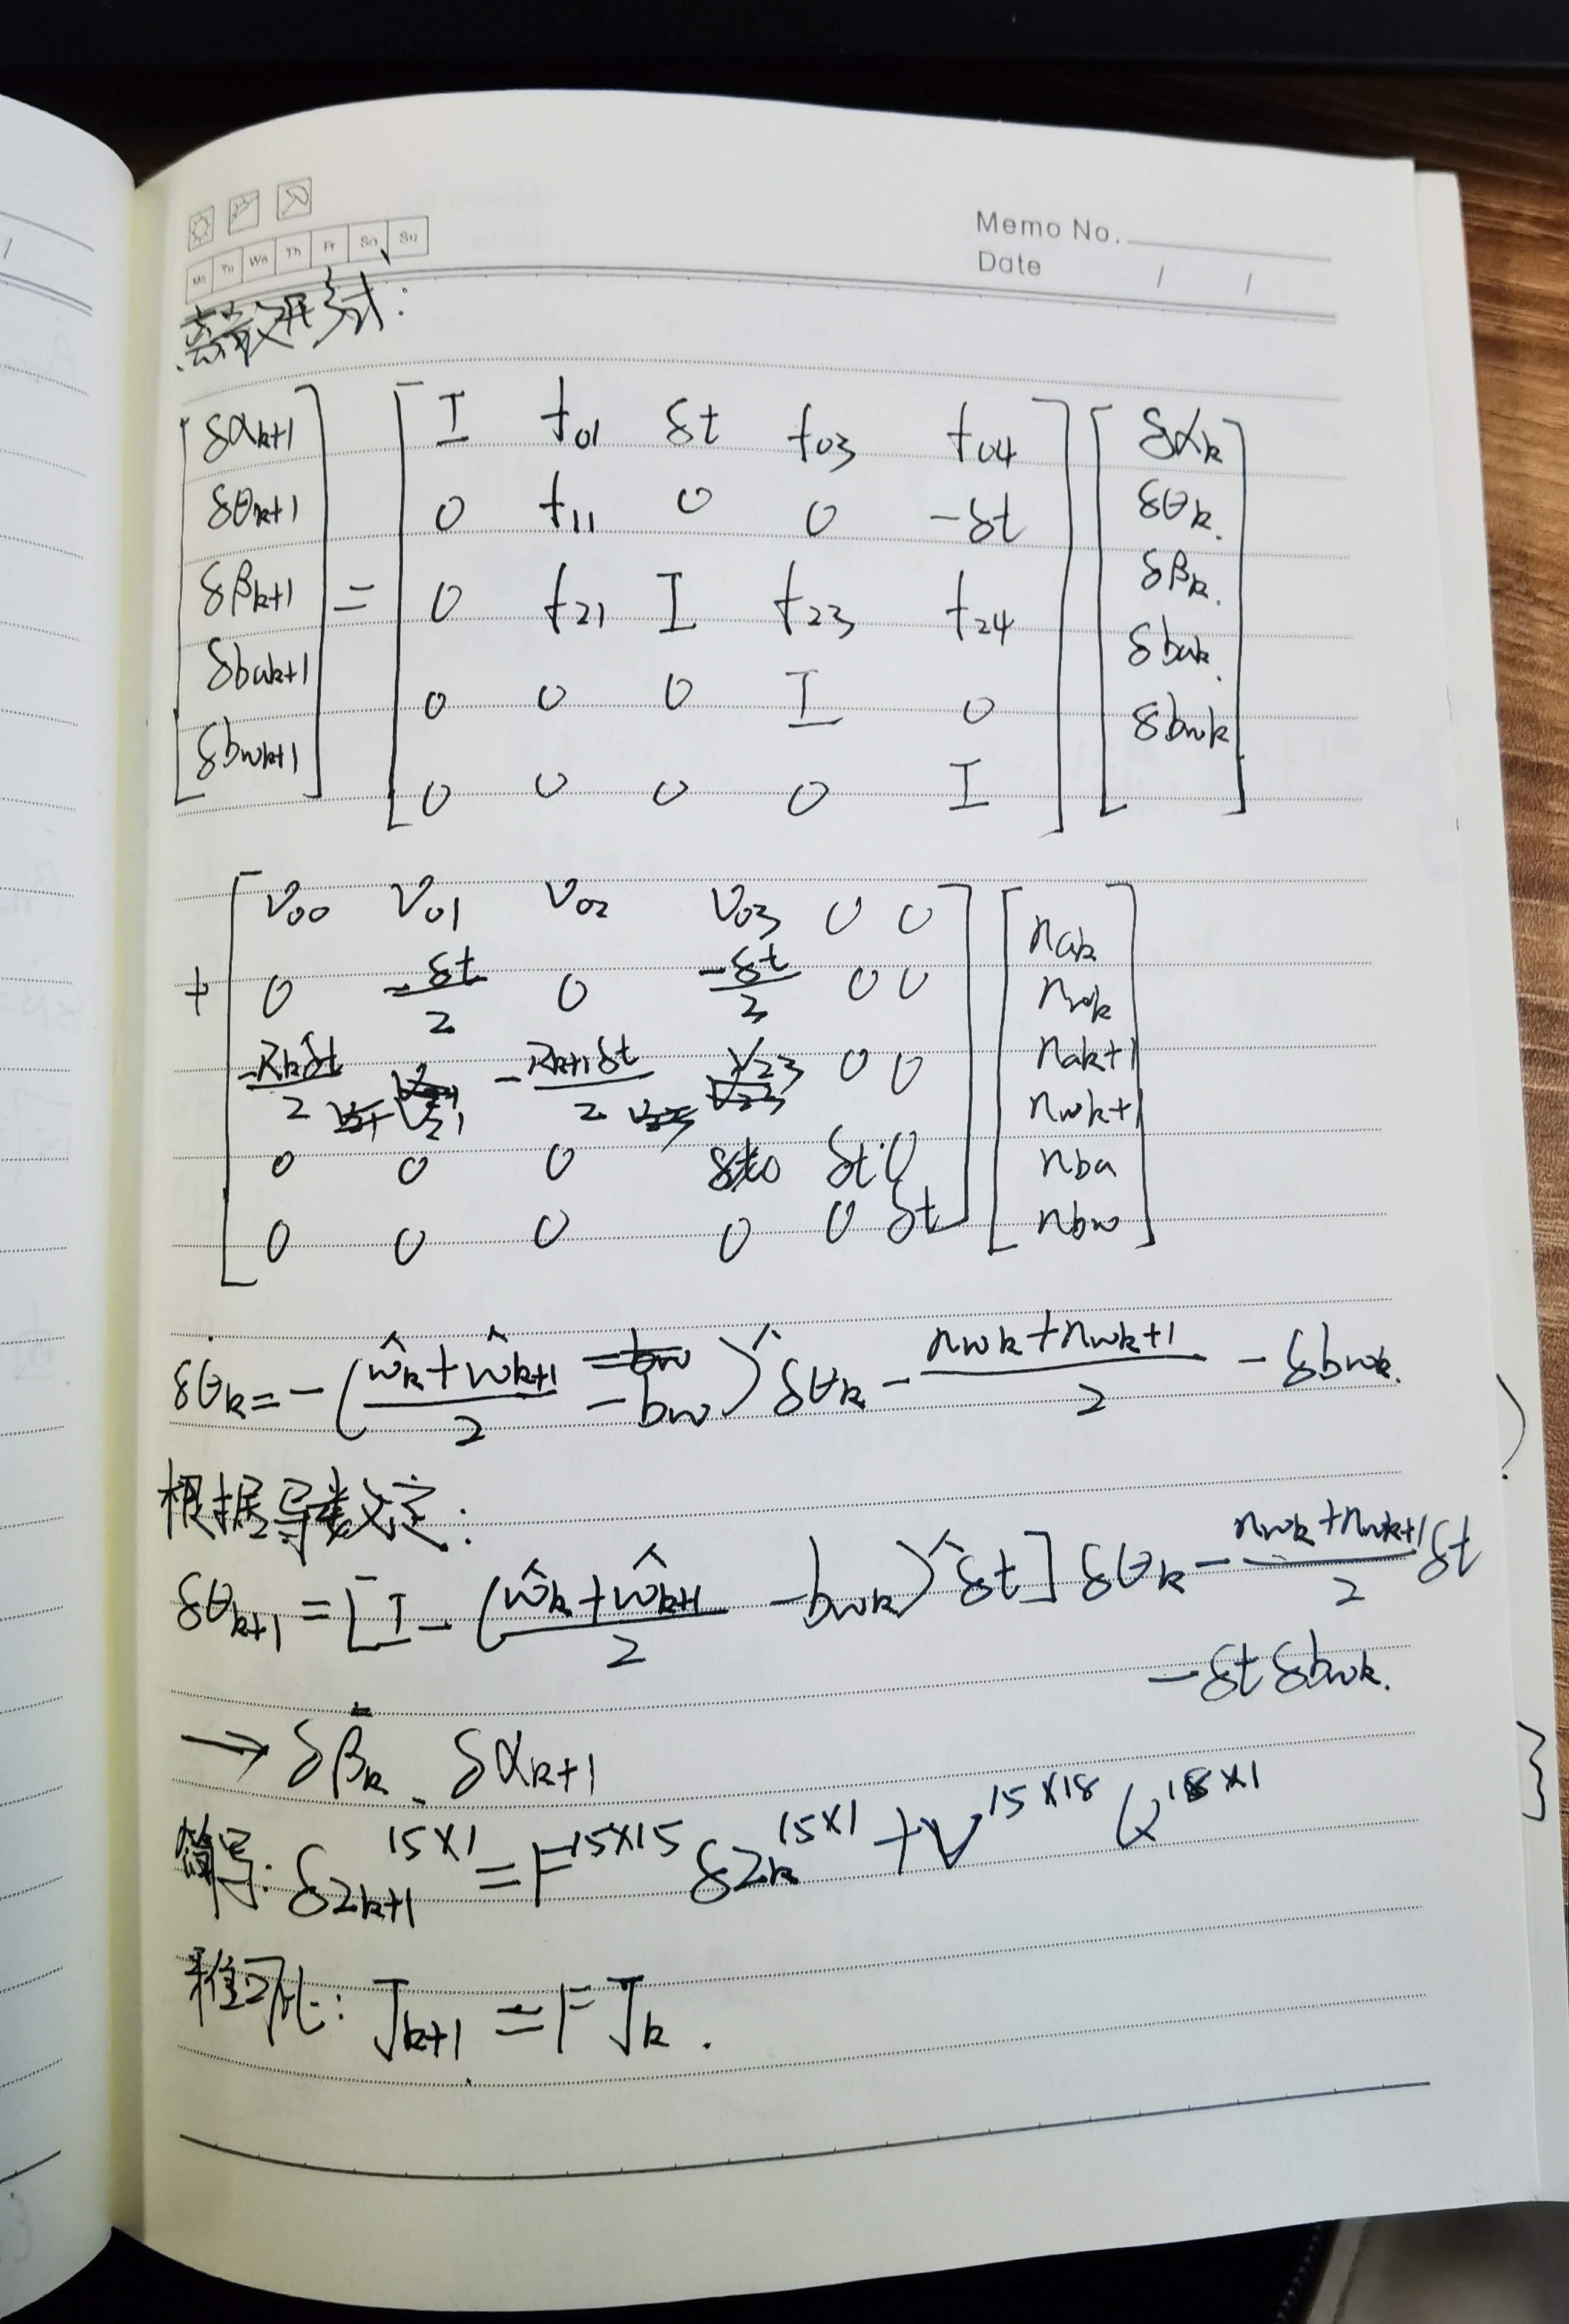 Mo Tu We Th Fr Sa Su
Memo No.
Date / /
离散形式:
[δα_{k+1}; δθ_{k+1}; δβ_{k+1}; δba_{k+1}; δbw_{k+1}] =
[I f_{01} δt f_{03} f_{04};
0 f_{11} 0 0 -δt;
0 f_{21} I f_{23} f_{24};
0 0 0 I 0;
0 0 0 0 I]
[δα_k; δθ_k; δβ_k; δba_k; δbw_k]
+ [V_{00} V_{01} V_{02} V_{03} 0 0;
0 -δt/2 0 -δt/2 0 0;
-R_kδt/2 V_{21} -R_{k+1}δt/2 V_{23} 0 0;
0 0 0 0 δt 0;
0 0 0 0 0 δt]
[n_{ak}; n_{wk}; n_{ak+1}; n_{wk+1}; n_{ba}; n_{bw}]
δθ̇_k = -((ŵ_k + ŵ_{k+1})/2 - b_w)^ δθ_k - (n_{wk} + n_{wk+1})/2 - δb_{wk}.
根据导数定:
δθ_{k+1} = [I - ((ŵ_k + ŵ_{k+1})/2 - b_{wk})^ δt] δθ_k - (n_{wk} + n_{wk+1})/2 δt
- δt δb_{wk}.
→ δβ̇_k、δα_{k+1}
简写: δz_{k+1}^{15×1} = F^{15×15} δz_k^{15×1} + V^{15×18} Q^{18×1}
雅可比: J_{k+1} = F J_k.